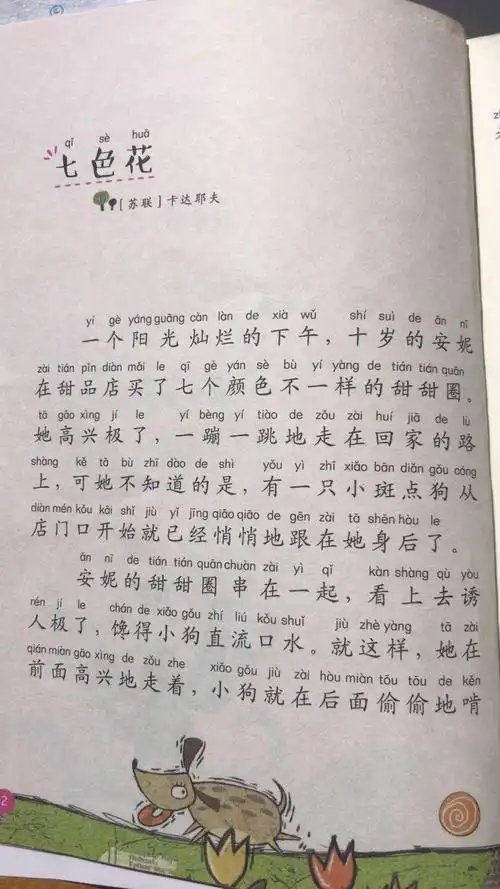 qī sè huā
七色花
［苏联］卡达耶夫
yí gè yáng guāng càn làn de xià wǔ shí suì de ān nī
一个阳光灿烂的下午，十岁的安妮
zài tián pǐn diàn mǎi le qī gè yán sè bù yí yàng de tián tián quān
在甜品店买了七个颜色不一样的甜甜圈。
tā gāo xìng jí le yí bèng yí tiào de zǒu zài huí jiā de lù
她高兴极了，一蹦一跳地走在回家的路
shàng kě tā bù zhī dào de shì yǒu yì zhī xiǎo bān diǎn gǒu cóng
上，可她不知道的是，有一只小斑点狗从
diàn mén kǒu kāi shǐ jiù yǐ jīng qiāo qiāo de gēn zài tā shēn hòu le
店门口开始就已经悄悄地跟在她身后了。
ān nī de tián tián quān chuàn zài yì qǐ kàn shàng qù yòu
安妮的甜甜圈串在一起，看上去诱
rén jí le chán de xiǎo gǒu zhí liú kǒu shuǐ jiù zhè yàng tā zài
人极了，馋得小狗直流口水。就这样，她在
qián miàn gāo xìng de zǒu zhe xiǎo gǒu jiù zài hòu miàn tōu tōu de kěn
前面高兴地走着，小狗就在后面偷偷地啃
2